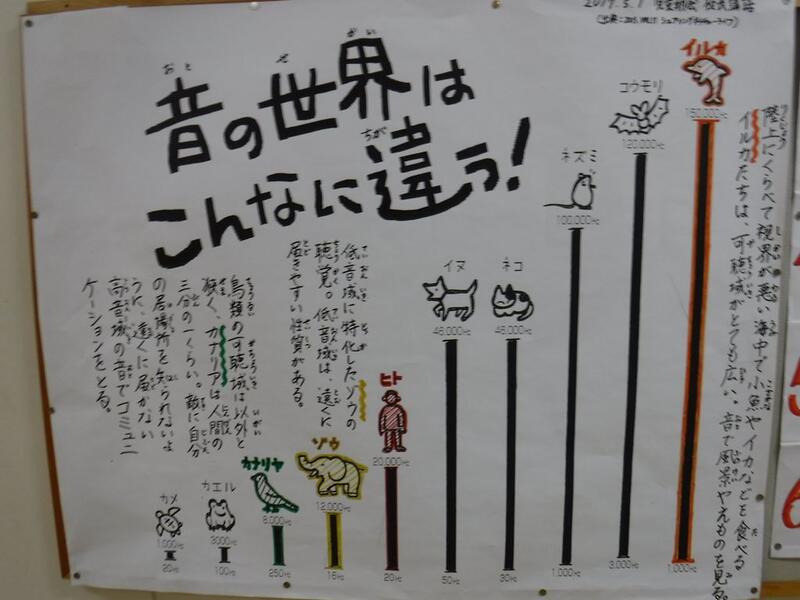 2019.5.7
音の世界は
こんなに違う!
おと
せ
かい
ちが
イルカ
150,000Hz
1,000Hz
コウモリ
120,000Hz
3,000Hz
ネズミ
100,000Hz
1,000Hz
ネコ
46,000Hz
30Hz
イヌ
46,000Hz
50Hz
ヒト
20,000Hz
20Hz
ゾウ
12,000Hz
16Hz
カナリヤ
8,000Hz
250Hz
カエル
3000Hz
100Hz
カメ
1,000Hz
20Hz
陸上にくらべて視界が悪い海中で小魚やイカなどを食べる
イルカたちは、可聴域がとても広い。音で風景やえものを見る。
低音域に特化したゾウの
聴覚。低音域は、遠くに
届きやすい性質がある。
鳥類の可聴域は以外と
狭く、カナリアは人間の
三分の一くらい。敵に自分
の居場所を知られないよ
うに、遠くに届かない
高音域の音でコミュニ
ケーションをとる。